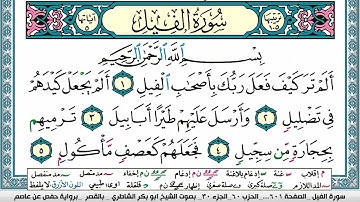 سُورَةُ الْفِيلِ
بِسْمِ اللَّهِ الرَّحْمَٰنِ الرَّحِيمِ
أَلَمْ تَرَ كَيْفَ فَعَلَ رَبُّكَ بِأَصْحَابِ الْفِيلِ ١ أَلَمْ يَجْعَلْ كَيْدَهُمْ
فِي تَضْلِيلٍ ٢ وَأَرْسَلَ عَلَيْهِمْ طَيْرًا أَبَابِيلَ ٣ تَرْمِيهِم
بِحِجَارَةٍ مِّن سِجِّيلٍ ٤ فَجَعَلَهُمْ كَعَصْفٍ مَّأْكُولٍ ٥
سورة الفيل الصفحة ٦٠١ حزب ٦٠ الجزء ٣٠ بصوت الشيخ ابو بكر الشاطري بالقصر برواية حفص عن عاصم